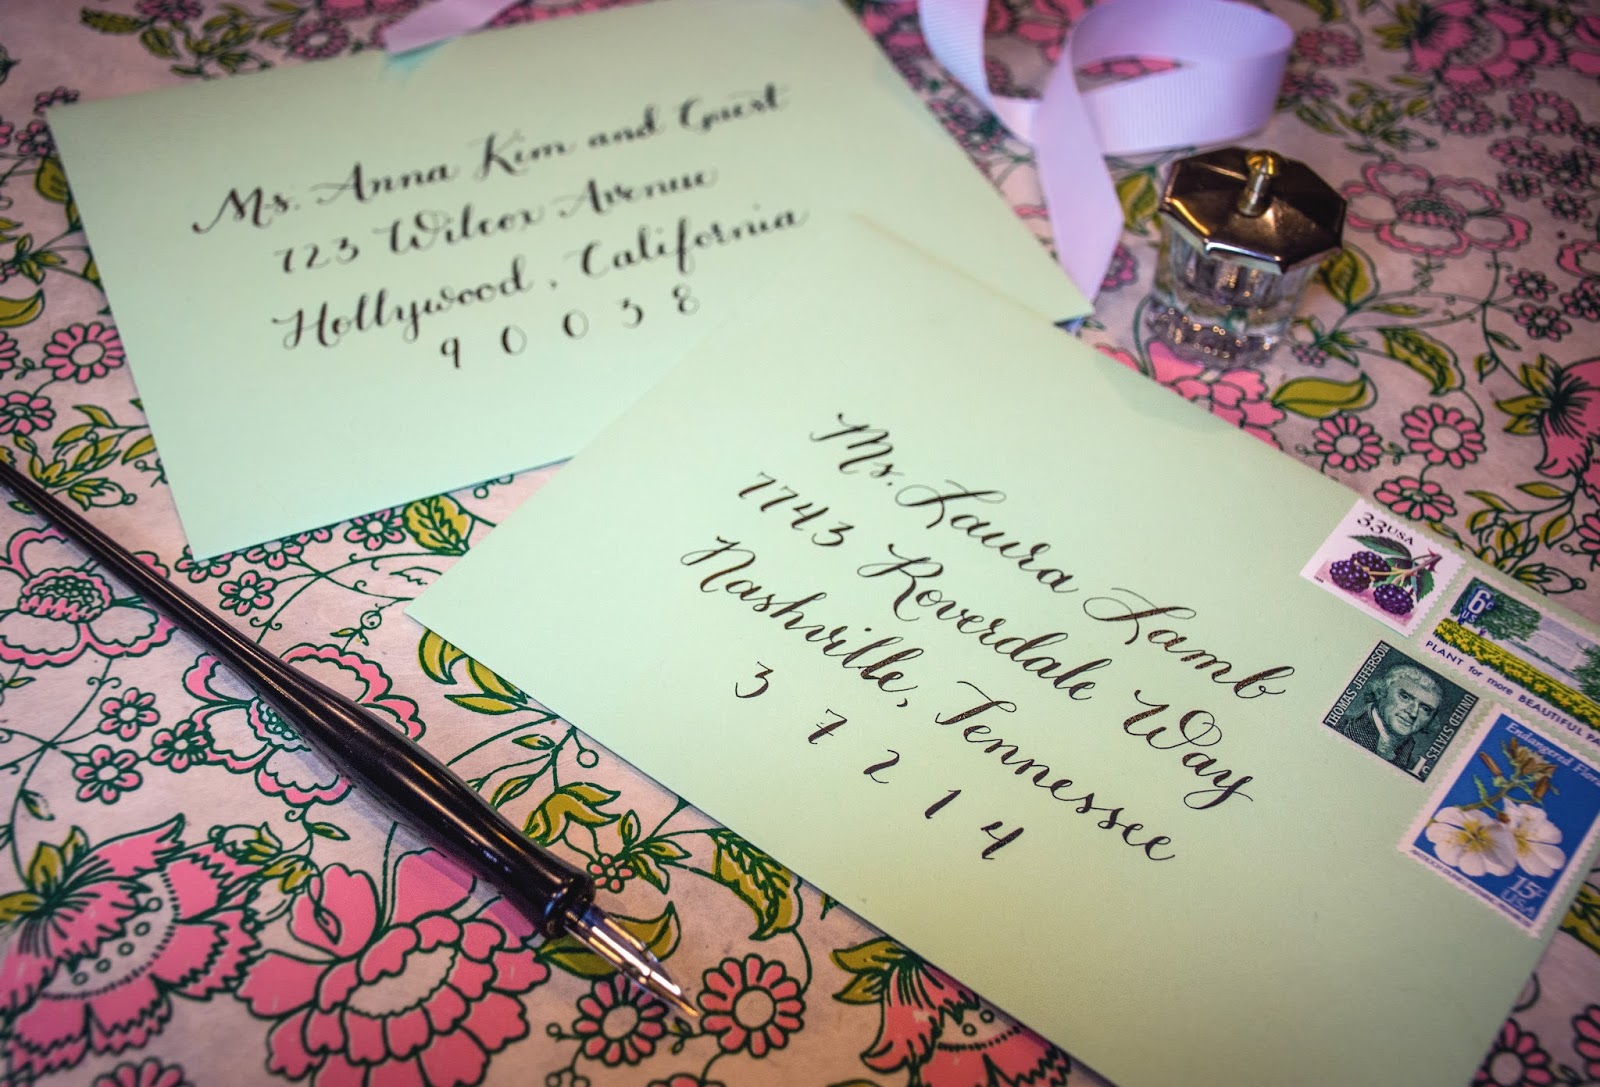 Ms. Anna Kim and Guest
723 Wilcox Avenue
Hollywood, California
90038
Ms. Laura Lamb
7743 Roverdale Way
Nashville, Tennessee
37214
33USA
6¢
PLANT for more BEAUTIFUL
THOMAS JEFFERSON
UNITED STATES
1¢
Endangered Flora
15¢
USA